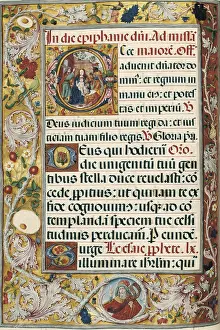 In die epiphanie dñi. Ad missã
Ecce maiorē. Off.
aduenit dñator do
min⁹: et regnum in
manu ei⁹: et potes
tas et imperiū. V
Deus iudicium tuum regi da: et ius
ticiam tuam filio regis. V Gloria p̃ri.
Deus qui hodierna Oro.
die unigenitū tuū gen
tibus stella duce reuelasti: con
cede ꝓpitius: ut qui iam te ex
fide cognouim⁹: usq; ad cō
templandā speciem tue celsi
tudinis perducam̃. P eundē.
Surge ꝓphete. lx.
illuminare ihrlm̃: qui